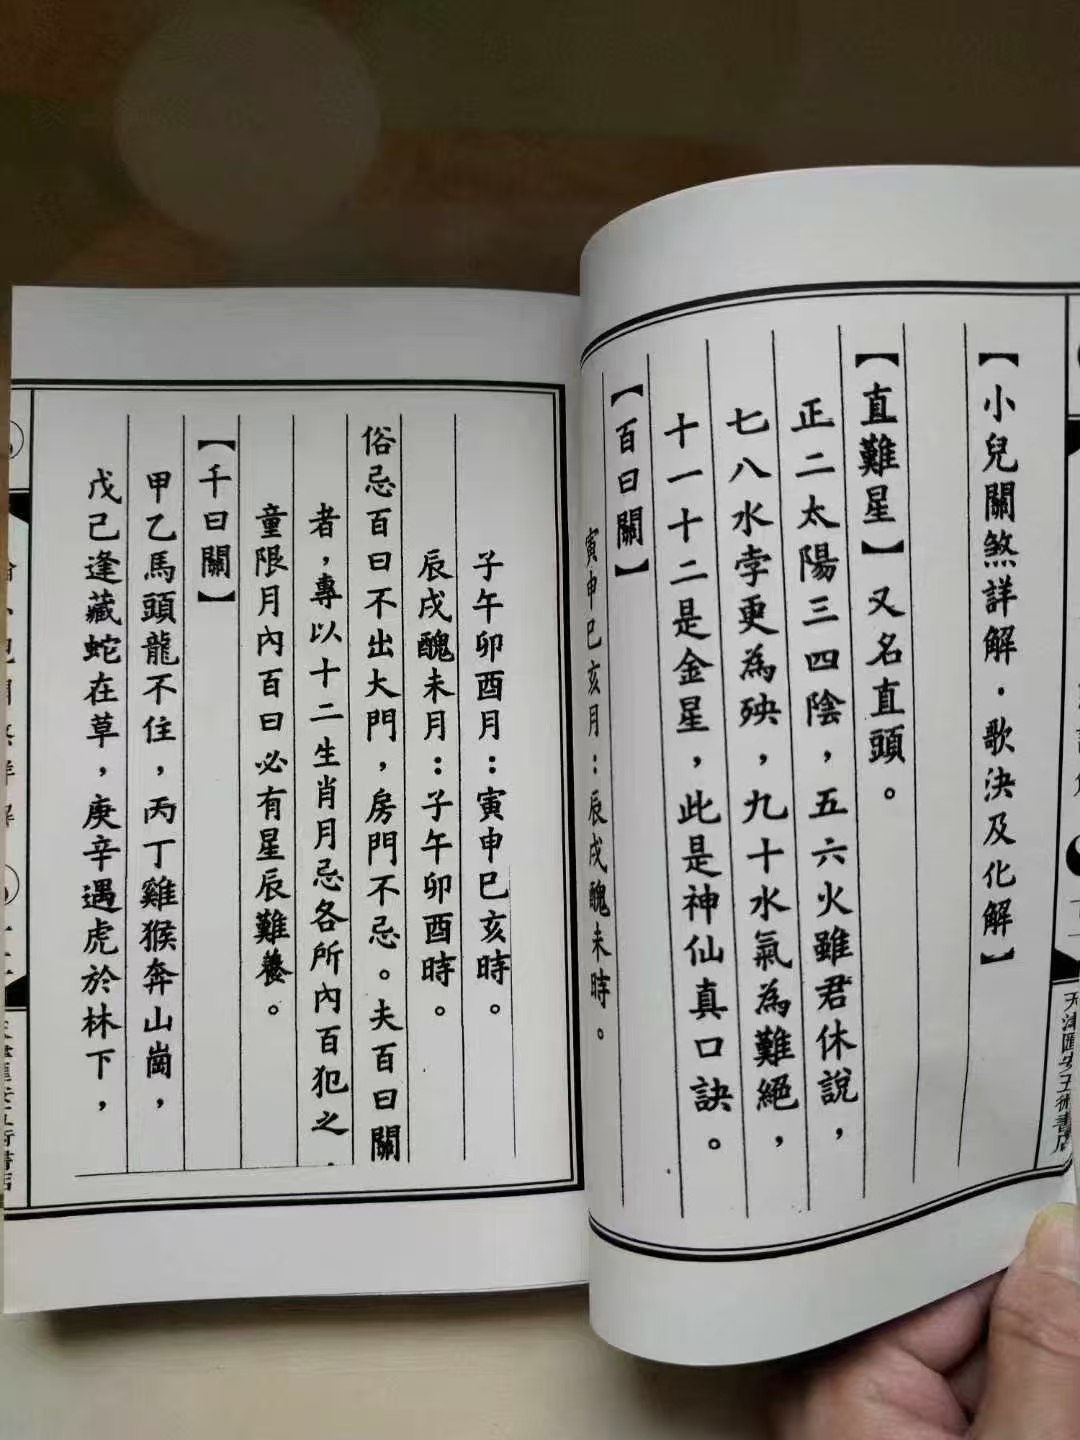 【小兒關煞詳解·歌決及化解】
【直難星】又名直頭。
正二太陽三四陰，五六火雖君休說，
七八水孛更為殃，九十水氣為難絕，
十一十二是金星，此是神仙真口訣。
【百日關】
寅申巳亥月：辰戌醜未時。
子午卯酉月：寅申巳亥時。
辰戌醜未月：子午卯酉時。
俗忌百日不出大門，房門不忌。夫百日關
者，專以十二生肖月忌各所內百犯之，
童限月內百日必有星辰難養。
【千日關】
甲乙馬頭龍不住，丙丁雞猴奔山崗，
戊己逢藏蛇在草，庚辛遇虎於林下，
天津匯安五術書店